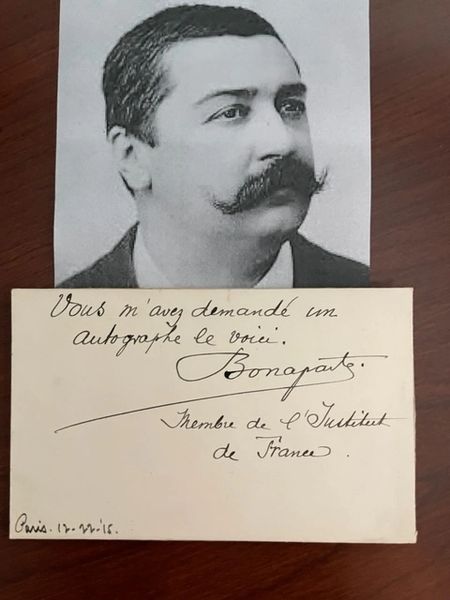 Vous m'avez demandé un
autographe le voici.
Bonaparte.
Membre de l'Institut
de France.
Paris. 12-22-'15.